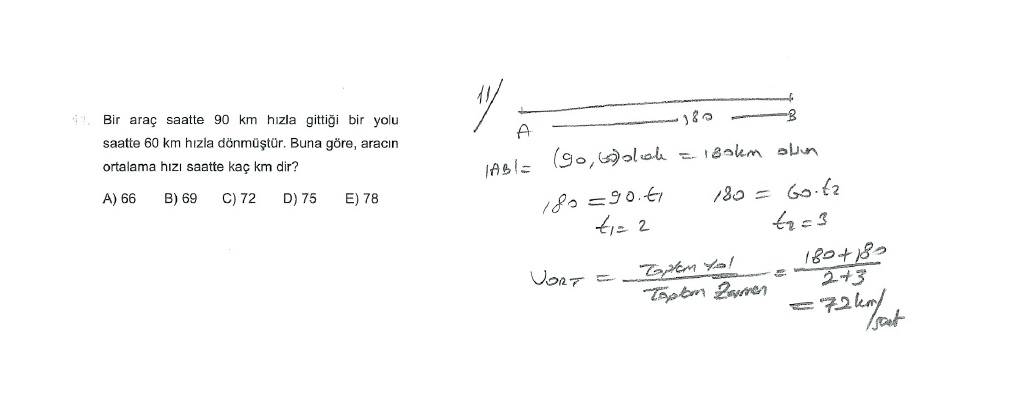 11. Bir araç saatte 90 km hızla gittiği bir yolu
saatte 60 km hızla dönmüştür. Buna göre, aracın
ortalama hızı saatte kaç km dir?
A) 66 B) 69 C) 72 D) 75 E) 78
11/
A 180 B
|AB| = (90,60)olek = 180km olsun
180 = 90.t1 180 = 60.t2
t1 = 2 t2 = 3
VORT = Toplam Yol / Toplam Zaman = 180+180 / 2+3
= 72 km/saat